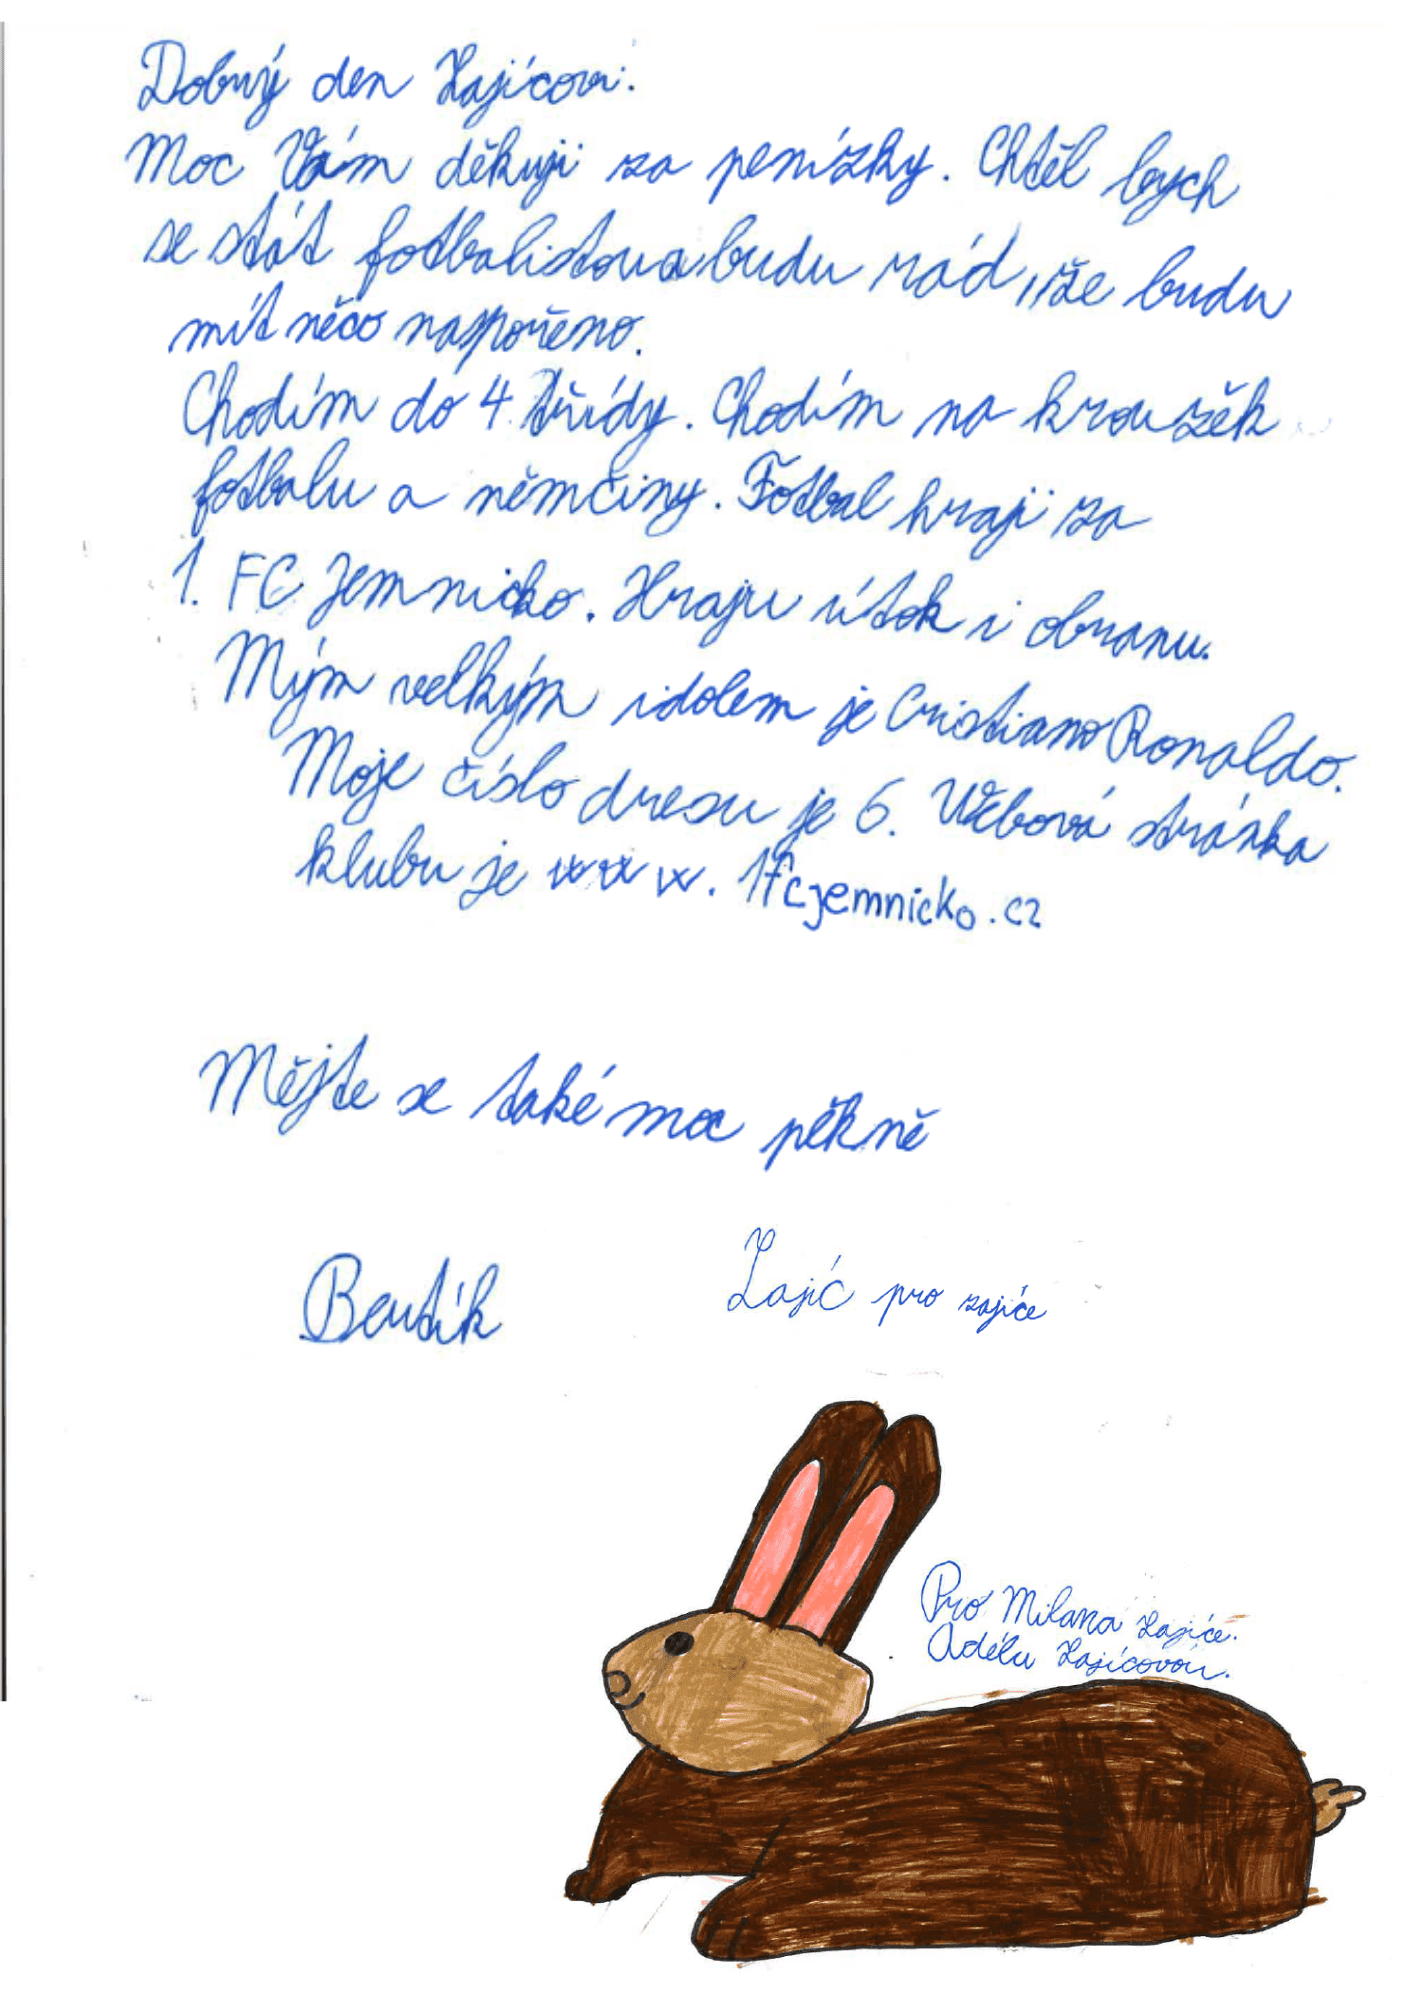 Dobrý den Zajícovi.
Moc Vám děkuji za penízky. Chtěl bych
se stát fotbalistou a budu rád, že budu
mít něco naspořeno.
Chodím do 4. třídy. Chodím na kroužek
fotbalu a němčiny. Fotbal hraji za
1. FC Jemnicko. Hraju útok i obranu.
Mým velkým idolem je Cristiano Ronaldo.
Moje číslo dresu je 6. Webová stránka
klubu je www.1fcjemnicko.cz
Mějte se také moc pěkně
Zajíc pro zajíce
Pro Milana Zajíce.
Adélu Zajícovou.